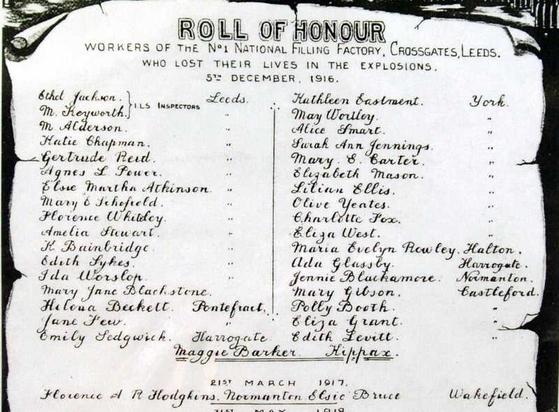 ROLL OF HONOUR
WORKERS OF THE No1 NATIONAL FILLING FACTORY, CROSSGATES, LEEDS.
WHO LOST THEIR LIVES IN THE EXPLOSIONS.
5TH DECEMBER, 1916.
Ethel Jackson. } I.L.S INSPECTORS Leeds.
M. Keyworth.
M. Alderson. "
Katie Chapman. "
Gertrude Reid. "
Agnes L Power. "
Elsie Martha Atkinson. "
Mary E Schofield. "
Florence Whiteley. "
Amelia Stewart. "
K. Bainbridge. "
Edith Sykes. "
Ida Worslop. "
Mary Jane Blackstone. "
Helena Beckett. Pontefract.
Jane Few. "
Emily Sedgwick. Harrogate
Kathleen Eastment. York.
May Wortley. "
Alice Smart. "
Sarah Ann Jennings. "
Mary. E. Carter. "
Elizabeth Mason. "
Lilian Ellis. "
Olive Yeates. "
Charlotte Fox. "
Eliza West. "
Maria Evelyn Rowley. Halton.
Ada Glassby. Harrogate.
Jennie Blackamore. Normanton.
Mary Gibson. Castleford.
Polly Booth. "
Eliza Grant. "
Edith Levitt. "
Maggie Barker Kippax.
21ST MARCH 1917.
Florence A R Hodgkins. Normanton Elsie Bruce Wakefield.
31ST MAY 1918